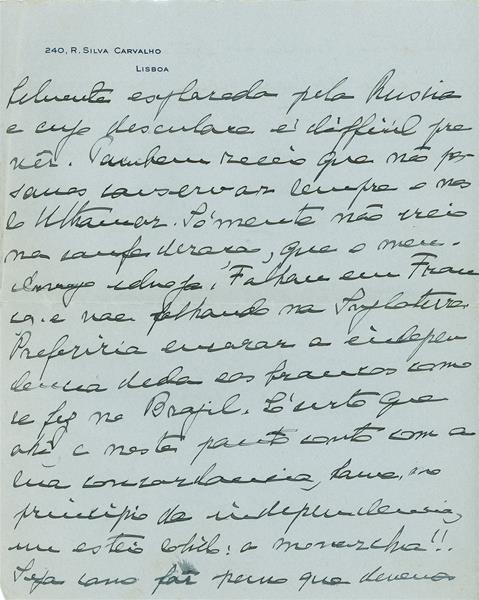 240, R. Silva Carvalho
Lisboa
pela Russia
e cujo é difficil pre
vêr. Tambem receio que não pos
samos conservar sempre o nos
so Ultramar. Sómente não creio
na que o meu
Falhou em Fran
ça e vae falhando na Inglaterra.
Preferiria encarar a indepen
dencia dada aos brancos como
se fez no Brazil. É certo que
até a neste ponto conto com a
tua concordancia, houve, no
principio da independencia,
um esteio solido: a monarchia!!
Seja como fôr penso que devemos